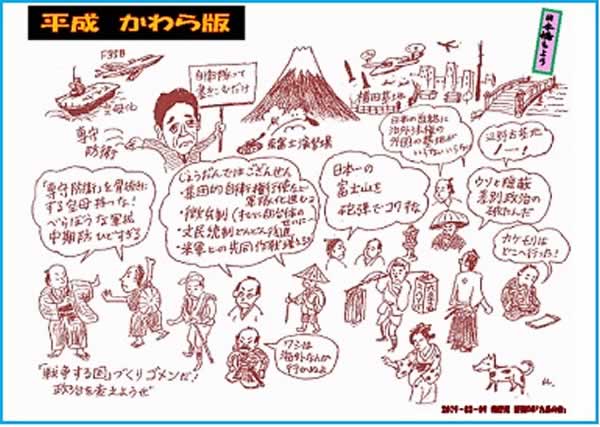 平成 かわら版
日本橋もよう
F35B
空母化
専守
防衛
自衛隊って
書きこむだけ
東富士演習場
横田基地
日本の首都に
治外法権の
外国の基地が
いらないいらない
辺野古基地
ノー!
「専守防衛」を骨抜きに
する空母持つな!
べらぼうな軍拡
中期防ひどすぎる
じょうだんではござんせん
・集団的自衛権行使など
軍隊化進む
・徴兵制(すでに自治体の
せいに
・文民統制どんどん後退
・米軍との共同作戦増える
日本一の
富士山を
砲弾でコワすな
ウソと隠蔽
差別政治の
破たんだ
カケモリは
どこへ行った!
ワシは
海外なんか
行かぬよ
「戦争する国」づくりゴメンだ!
政治を変えようぜ